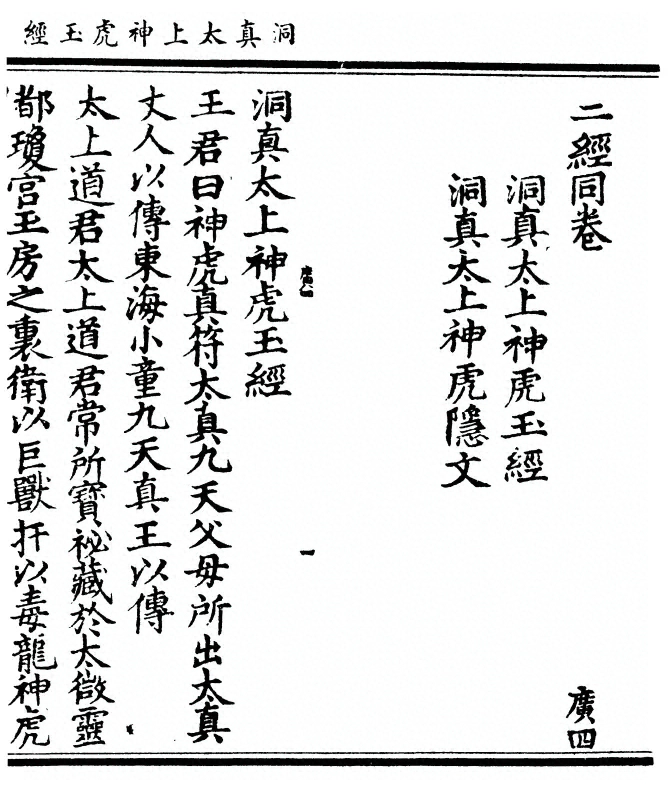 洞真太上神虎玉經
二經同卷　廣四
洞真太上神虎玉經
洞真太上神虎隱文
洞真太上神虎玉經
王君曰神虎真符太真九天父母所出太真
丈人以傳東海小童九天真王以傳
太上道君太上道君常所寶祕藏於太微靈
都瓊宮玉房之裏衛以巨獸扞以毒龍神虎